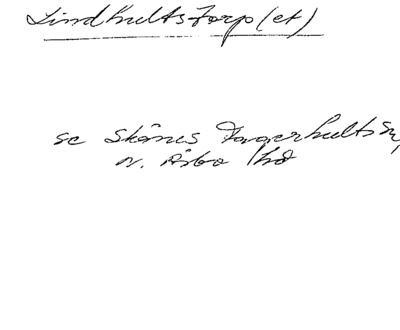 Lindhultstorp (et)
se Skånes Fagerhults sn,
N. Åsbo hd